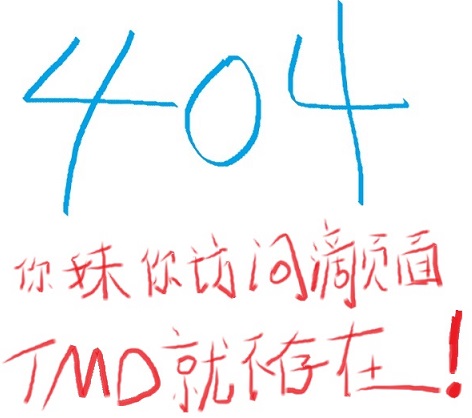 404
你妹你访问滴页面
TMD就不存在！